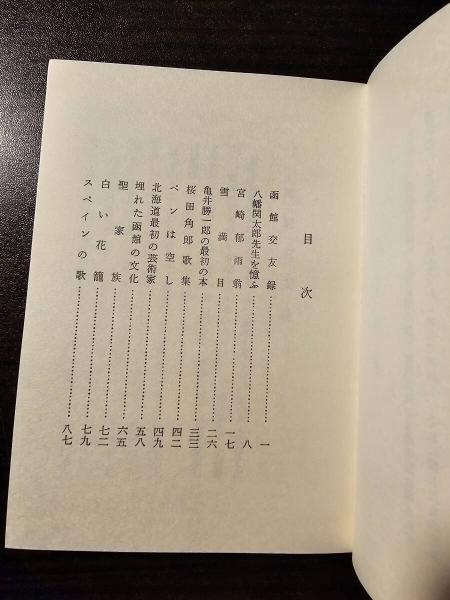 目次
函館交友録……一
八幡関太郎先生を憶ふ……八
宮崎郁雨翁……一七
雪満目……二六
亀井勝一郎の最初の本……三三
桜田角郎歌集……四二
ペンは空し……四九
北海道最初の芸術家……五八
埋れた函館の文化……六五
聖家族……七二
白い花籠……七九
スペインの歌……八七